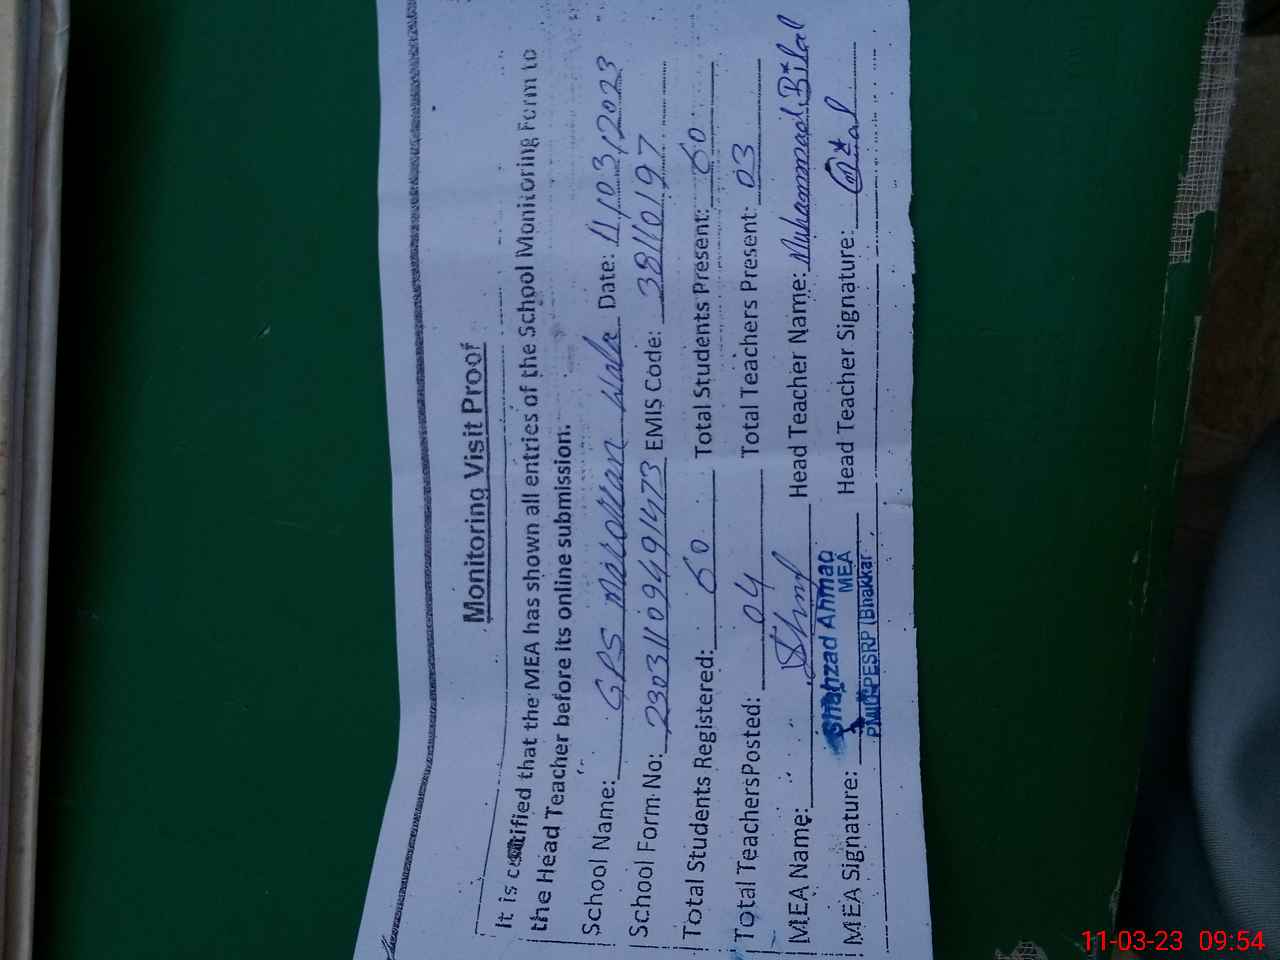 Monitoring Visit Proof
It is certified that the MEA has shown all entries of the School Monitoring Form to
the Head Teacher before its online submission.
School Name: GPS Wala Date: 11/03/2023
School Form No: 2303110949 EMIS Code: 38110197
Total Students Registered: 60 Total Students Present: 60
Total TeachersPosted: 04 Total Teachers Present: 03
MEA Name: Head Teacher Name: Muhammad Bilal
Shahzad Ahmad
MEA
MEA Signature: Head Teacher Signature: Bilal
PESRP (Bhakkar
11-03-23 09:54